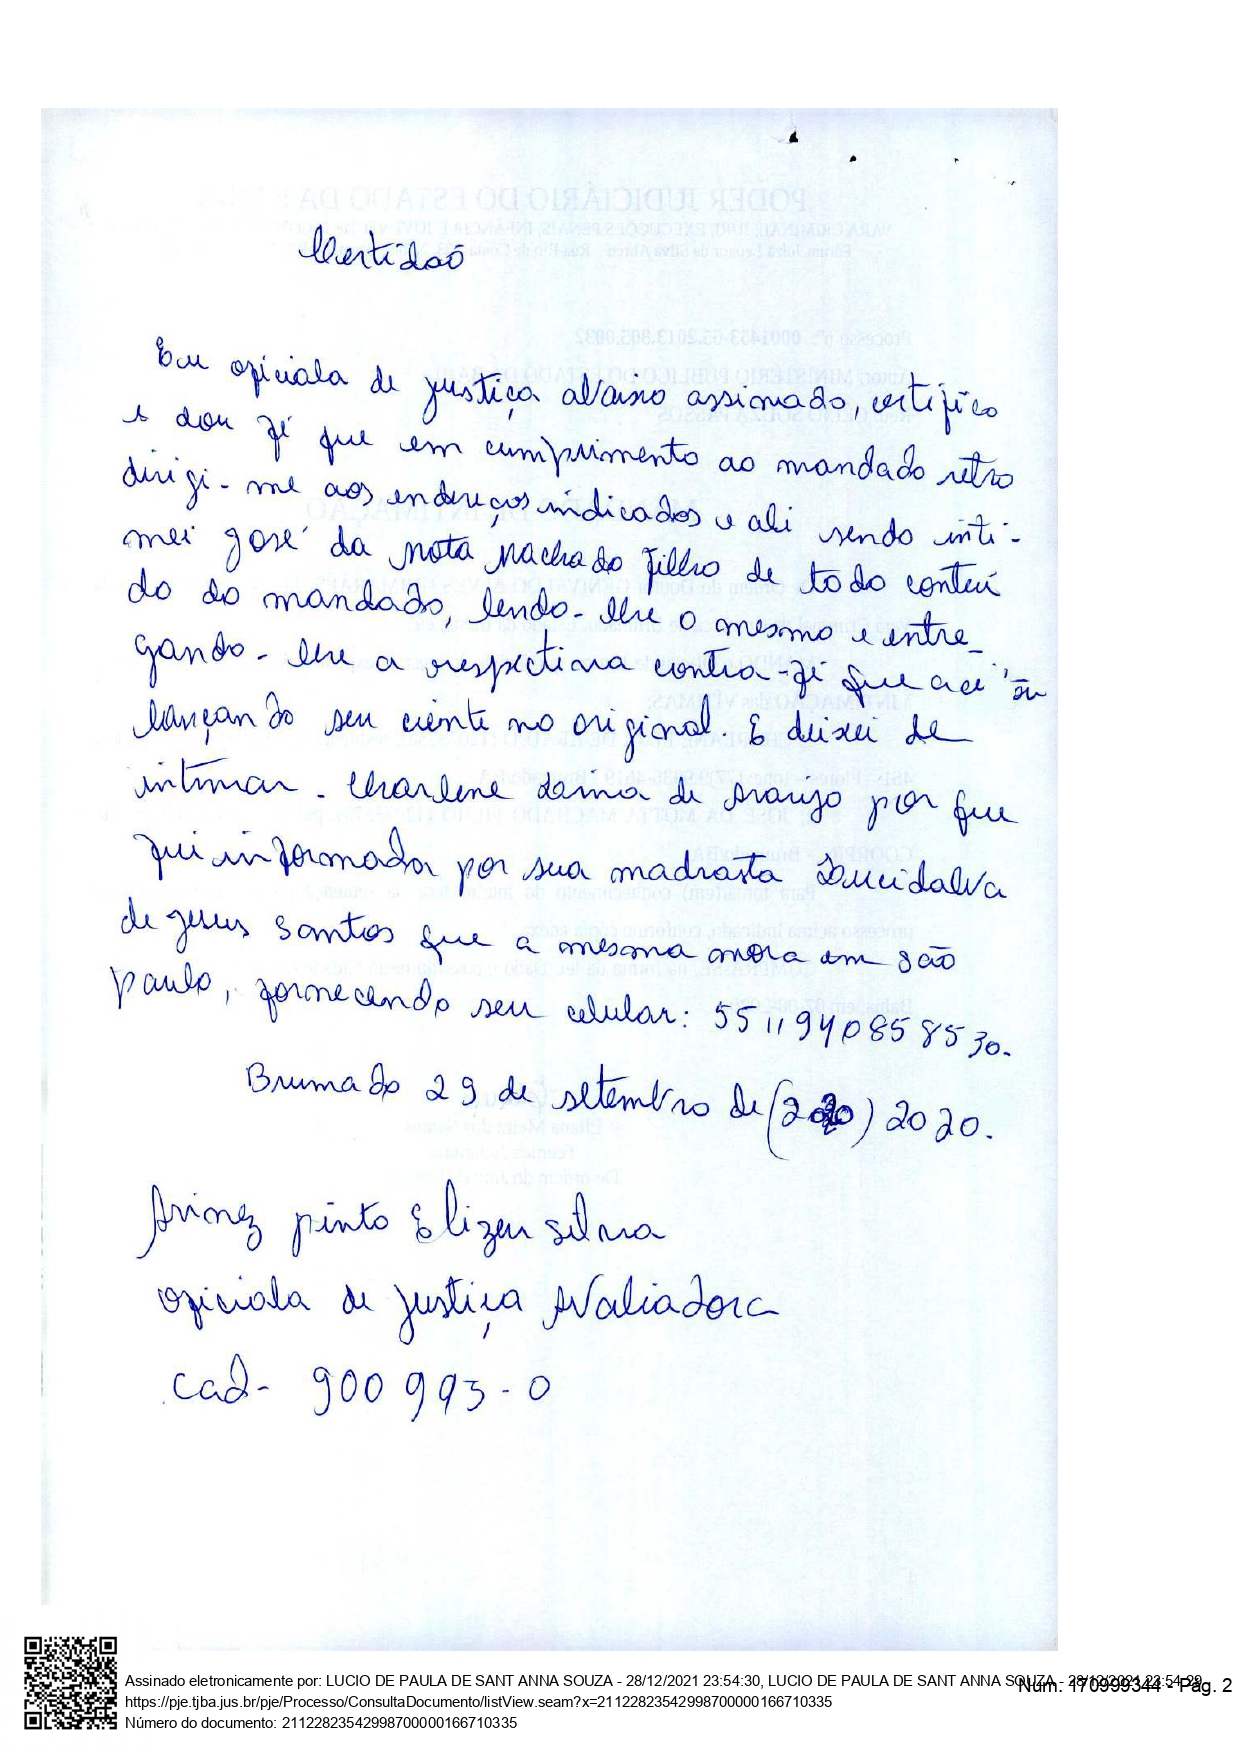 Certidaõ
Eu oficiala de justiça abaixo assinado, certifico
e dou fé que em cumprimento ao mandado retro
dirigi-me aos endereços indicados e ali sendo inti-
mei José da Mota Machado Filho de todo conteú
do do mandado, lendo-lhe o mesmo e entre_
gando-lhe a respectiva contra-fé que aceitou
lançando seu ciente no original. E deixei de
intimar - Charlene Lima de Araujo por que
fui informada por sua madrasta Lucidalva
de Jesus Santos que a mesma mora em são
paulo, fornecendo seu celular: 5511940858530.
Brumado 29 de setembro de (2020) 2020.
pinto Elizeu silva
oficiala de justiça Avaliadora
cad- 900993-0
Assinado eletronicamente por: LUCIO DE PAULA DE SANT ANNA SOUZA - 28/12/2021 23:54:30, LUCIO DE PAULA DE SANT ANNA SOUZA - 28/12/2021 23:54:29
Num. 170999344 - Pág. 2
https://pje.tjba.jus.br/pje/Processo/ConsultaDocumento/listView.seam?x=21122823542998700000166710335
Número do documento: 21122823542998700000166710335